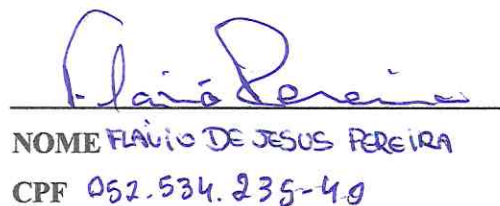 Flavio Pereira
NOME FLAVIO DE JESUS PEREIRA
CPF 052.534.235-49